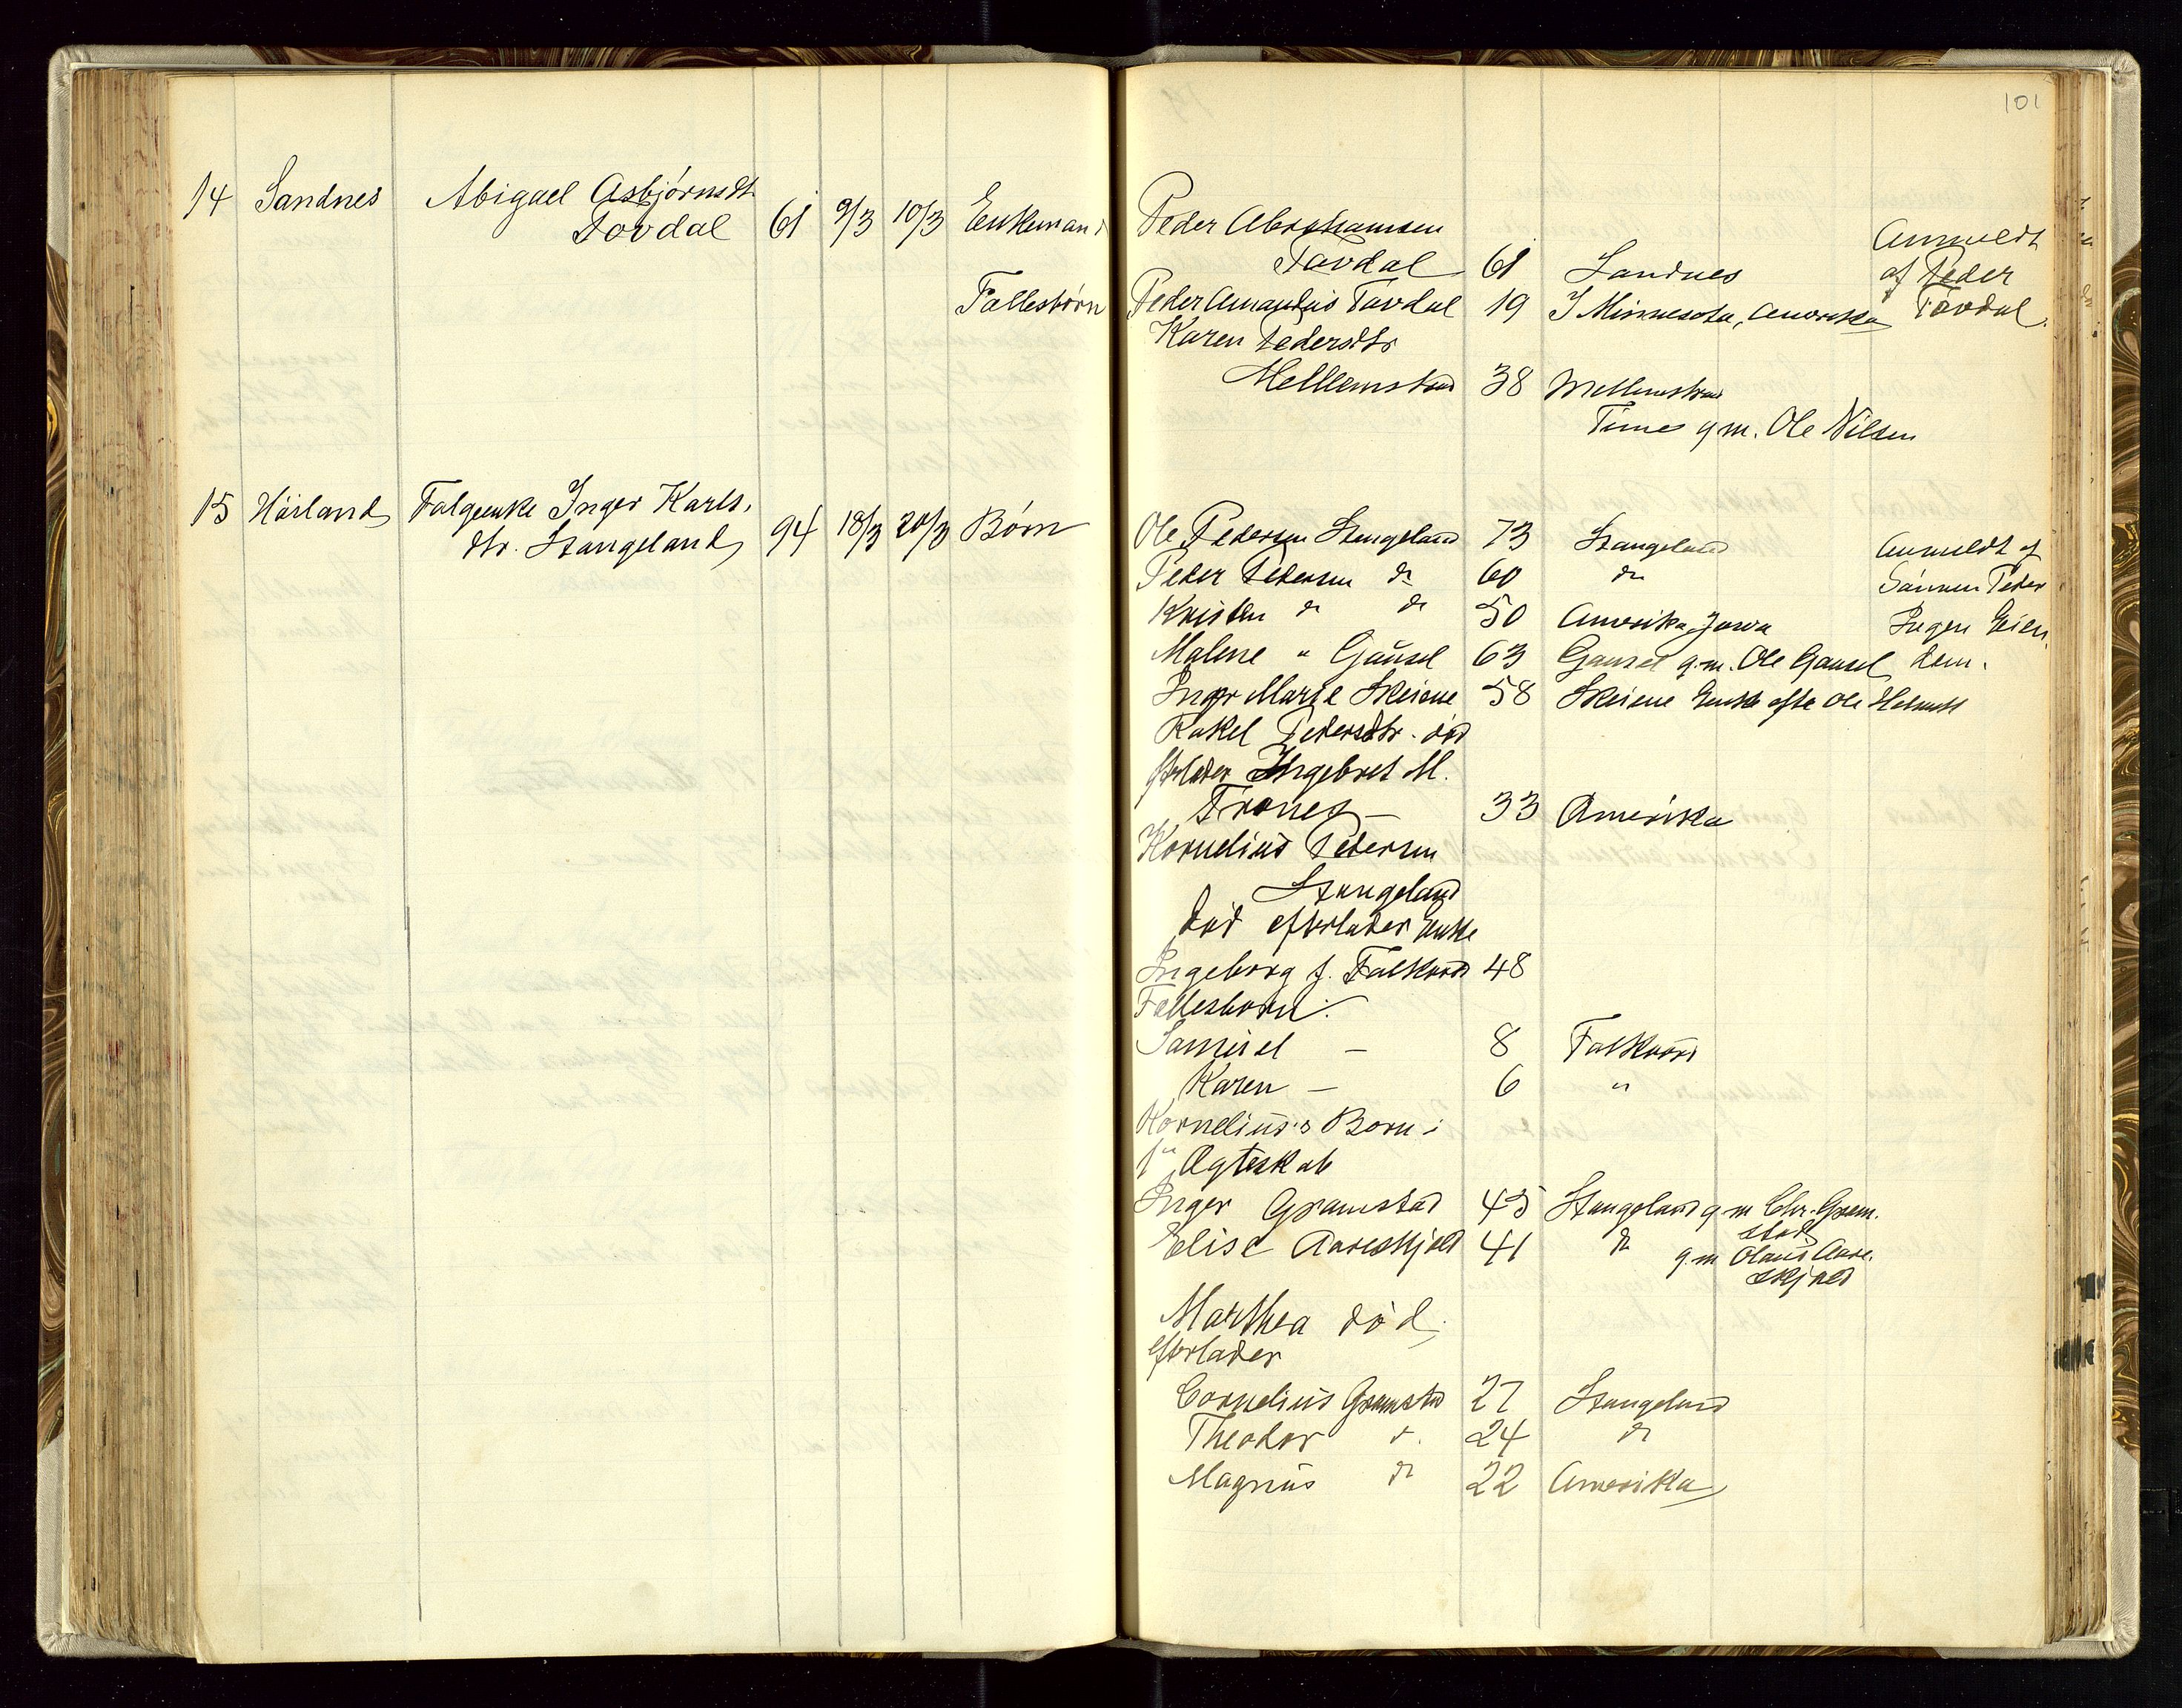 101
14 Sandnes Abigael Asbjörnsdt.
Tovdal 61 9/3 10/3 Enkemand
Fællesbørn
Peder Abrahamsen
Tavdal 61 Sandnes
Anmeldt
af Peder
Tövdal.
Peder Amandus Tavdal 19 I Minnesota, Amerika
Karen Pedersdtr
Mellemstrand 38 Mellemstrand
Time g. m. Ole Nilsen
15 Höiland Falgeenke Inger Karls.
dtr. Stangeland 94 18/3 20/3 Børn
Ole Pedersen Stangeland 73 Stangeland Anmeldt af
Peder Pedersen do 60 do Sønnen Peder
Kristen do do 50 Amerika, Jowa Ingen Eien
Malene " Gausel 63 Gausel g. m. Ole Gausel dom.
Inger Marie Skeiene 58 Skeiene Enke efter Ole
Rakel Pedersdtr. död
efterlader Ingebret M.
Trones – 33 Amerika
Kornelius Pedersen
Stangeland
död efterlader Enke
Ingeborg f. 48
Fællesbørn:
Samuel – 8
Karen – 6 "
Kornelius's Børn i
1ste Ægteskab
Inger Gramstad 45 Stangeland g. m. Chr. Gram.
stad
Elise Aareskjold 41 do g. m. Olaus Aare.
skjold
Marthea död.
efterlader
Cornelius Gramstad 27 Stangeland
Theodor do. 24 do
Magnus do 22 Amerika